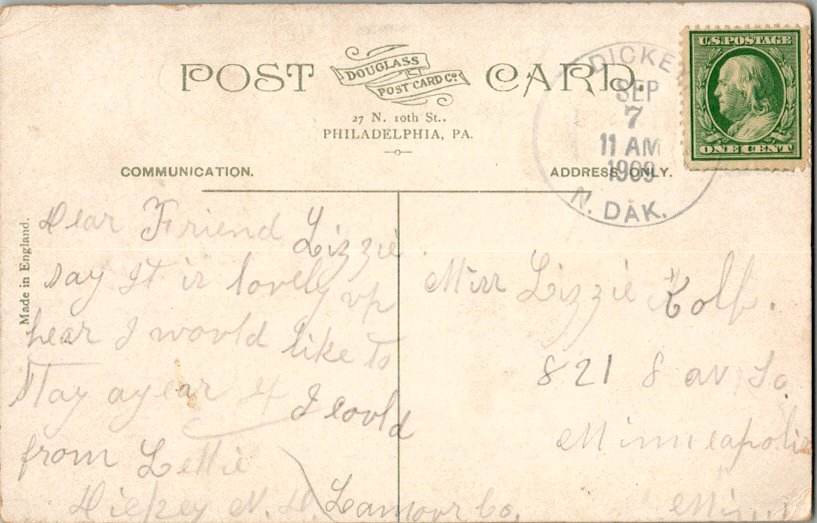 POST CARD.
DOUGLASS
POST CARD Co.
27 N. 10th St..
PHILADELPHIA, PA.
COMMUNICATION.
ADDRESS ONLY.
Made in England.
U.S. POSTAGE
ONE CENT
DICKEY
SEP
7
11 AM
1909
N. DAK.
Dear Friend Lizzie
say It is lovely up
hear I would like to
stay a year if I could
from Lettie
Dickey N. D. Lamour Co.
Miss Lizzie Kolb.
821 8 av So
Minneapolis
Minn